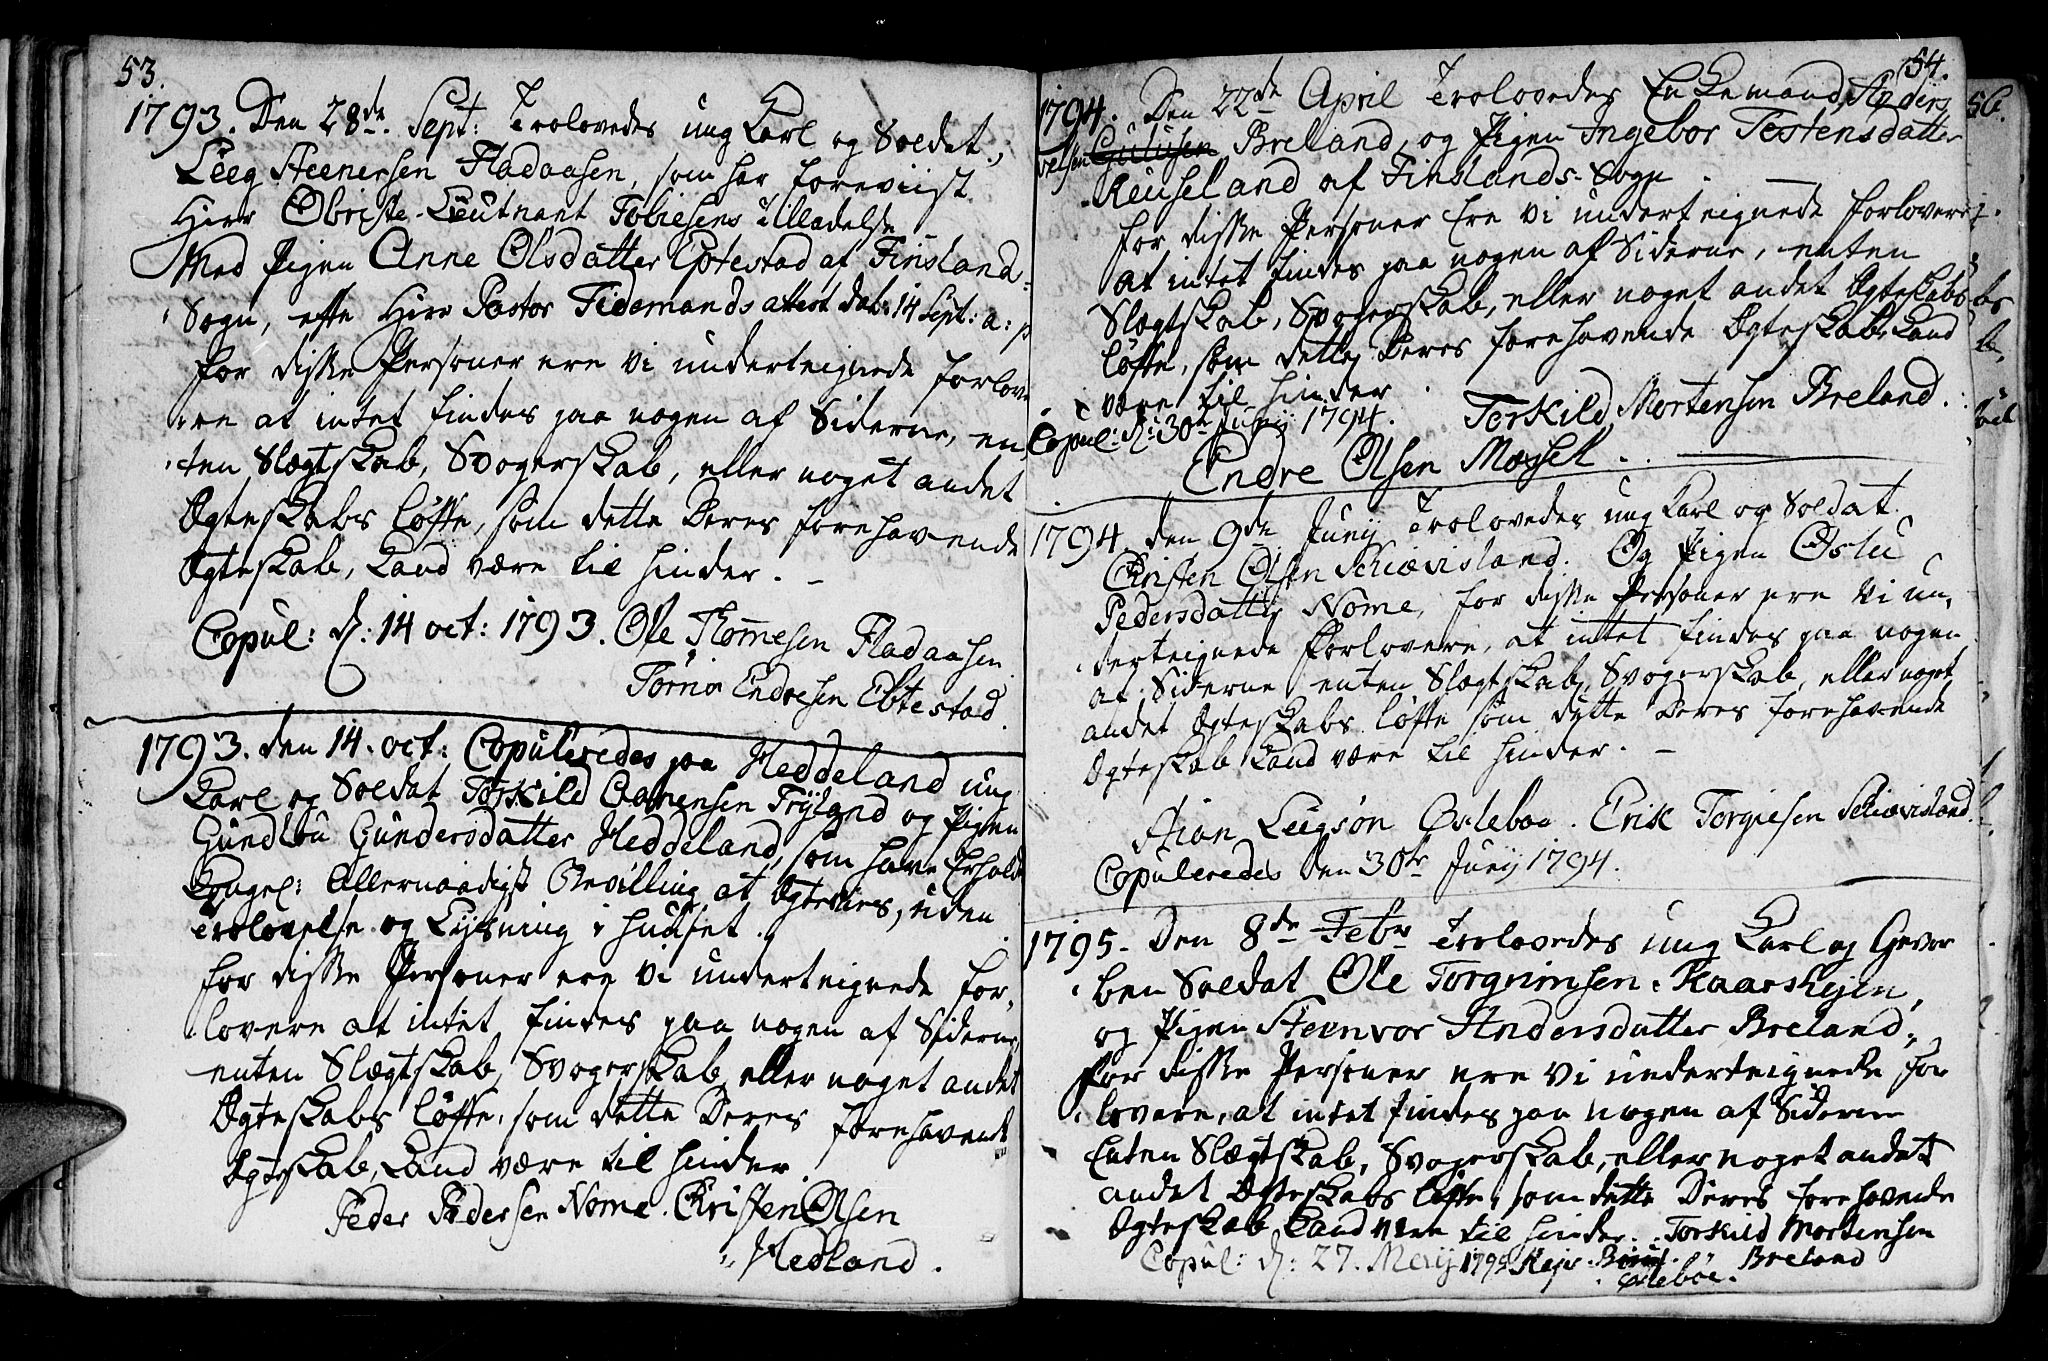 53.
1793. Den 28de. Sept: Trolovedes ung Karl og Soldat,
Leeg Steenersen Fladaasen, som har foreviist
Herr Obriste-Lieutnant Tobiesens Tilladelse
Med Pigen Anne Olsdatter Gotestad af Finslands
Sogn, efter Herr Pastor Tidemands attest dat: 14 Sept: a: p
for disse Personer ere vi underteignede forlove
re at intet findes paa nogen af Siderne, en
ten Slægtskab, Svogerskab, eller noget andet
Egteskabs Løfte, som dette Deres forehavende
Egteskab, kand være til hinder. -
Copul: d: 14 oct: 1793. Ole Tommesen Fladaasen
Endresen Ebtestad
1793. den 14. oct: Copuleredes paa Heddeland ung
Karl og Soldat Torkild Aanensen Fryland og Pigen
Gundbu Gundersdatter Heddeland, som have Erholdt
Kongel: Allernaadigst Bevilling at Egtevies, uden
trolovelse og Lysning i huuset.
for disse Personer ere vi underteignede for,
lovere at intet findes paa nogen af Siderne
enten Slægtskab, Svogerskab, eller noget andet
Egteskabs Løfte, som dette Deres forehavende
Egteskab, kand være til hinder.
Peder Pedersen Nome. Christen Olsen
Hedland.
54.
1794. Den 22de April Trolovedes Enkemand, Anders
Breland, og Pigen Ingebor Testensdatter
Reuseland af Finslands-Sogn. -
for disse Personer Ere vi underteignede forlovere
at intet findes paa nogen af Siderne, enten
Slægtskab, Svogerskab, eller noget andet Egteskabs
løfte, som dette Deres forehavende Egteskab, kand
være til hinder. Torkild Mortensen Breland.
Copul: d: 30te Junij 1794.
Endre Olsen Mossel.
1794 den 9de Junij Trolovedes ung Karl og Soldat
Christen Olsen Schiævisland. Og Pigen Oslu
Pedersdatter Nome, for disse Personer ere Vi un,
derteignede Forlovere, at intet findes paa nogen
af Siderne enten Slægtskab, Svogerskab, eller noget
andet Egteskabs Løfte som dette Deres forehavende
Egteskab kand være til hinder. -
Aion Leigsøn Oslebøe. Erik Torgiesen Schiævisland.
Copuleredes den 30te Junij 1794.
1795. Den 8de Febr Trolovedes ung Karl og Gevor
ben Soldat Ole Torgrimsen Kaarshejen,
og Pigen Steenvor Andersdatter Breland.
for disse Personer ere Vi underteignede for
lovere, at intet findes paa nogen af Siderne
Enten Slægtskab, Svogerskab, eller noget andet
andet Egteskabs løfte, som dette Deres forehavende
Egteskab kand være til hinder. Torkild Mortensen
Breland
Copul: d: 27. Merij 1795
Oslebøe.
56.